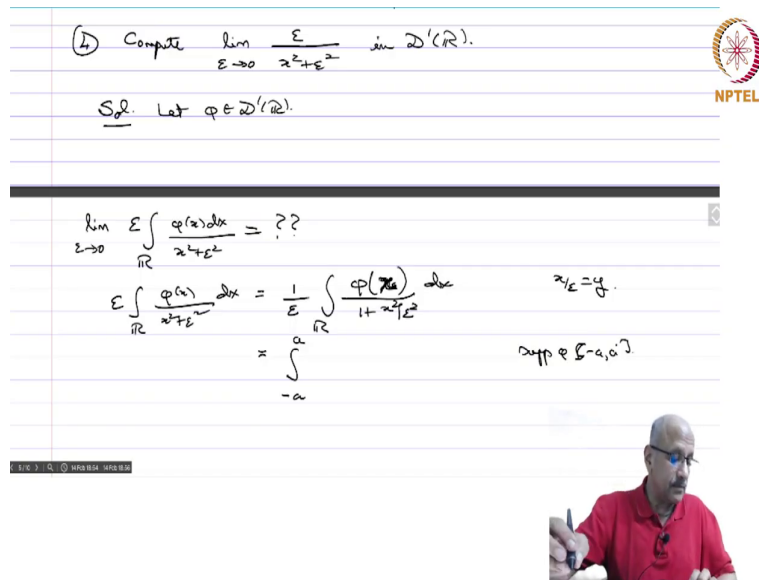 ④ Compute lim ε→0 ε/(x²+ε²) in D'(ℝ).
NPTEL
Sol. Let φ ∈ D'(ℝ).
lim ε→0 ε ∫_ℝ φ(x)dx/(x²+ε²) = ??
ε ∫_ℝ φ(x)/(x²+ε²) dx = 1/ε ∫_ℝ φ(x)/(1+x²/ε²) dx x/ε = y.
= ∫_{-a}^{a} supp φ [-a,a].
5/10 14 Feb 18:54 14 Feb 18:56